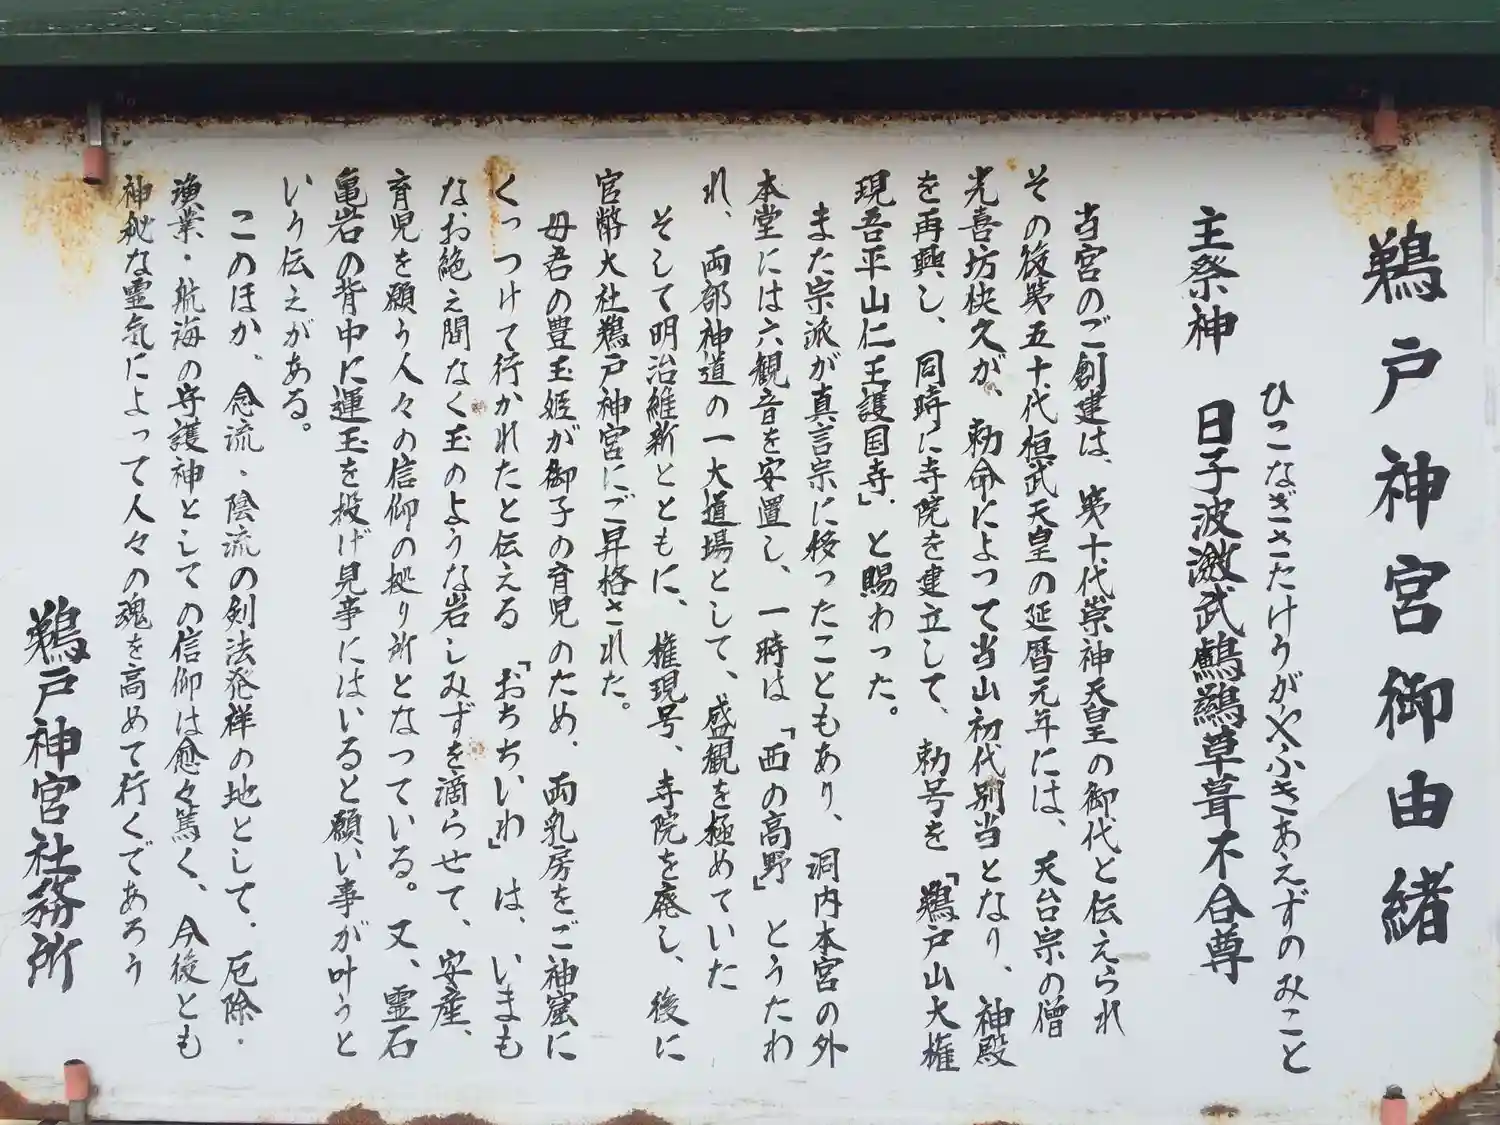 鵜戸神宮御由緒
ひこなぎさたけうがやふきあえずのみこと
主祭神 日子波瀲武鸕鷀草葺不合尊
当宮のご創建は、第十代崇神天皇の御代と伝えられ
その後第五十代桓武天皇の延暦元年には、天台宗の僧
光喜坊快久が、勅命によって当山初代別当となり、神殿
を再興し、同時に寺院を建立して、勅号を「鵜戸山大権
現吾平山仁王護国寺」と賜わった。
また宗派が真言宗に移ったこともあり、洞内本宮の外
本堂には六観音を安置し、一時は「西の高野」とうたわ
れ、両部神道の一大道場として、盛観を極めていた
そして明治維新とともに、権現号、寺院を廃し、後に
官幣大社鵜戸神宮にご昇格された。
母君の豊玉姫が御子の育児のため、両乳房をご神窟に
くっつけて行かれたと伝える「おちちいわ」は、いまも
なお絶え間なく玉のような岩しみずを滴らせて、安産、
育児を願う人々の信仰の拠り所となっている。又、霊石
亀岩の背中に運玉を投げ見事にはいると願い事が叶うと
いう伝えがある。
このほか、念流・陰流の剣法発祥の地として、厄除・
漁業・航海の守護神としての信仰は愈々篤く、今後とも
神秘な霊気によって人々の魂を高めて行くであろう
鵜戸神宮社務所